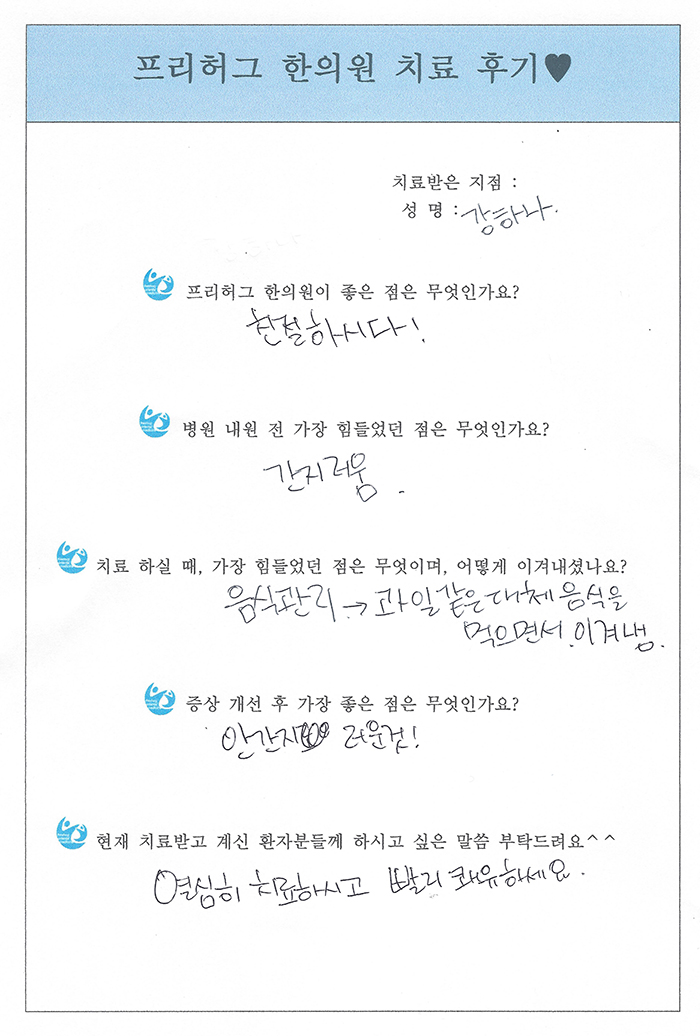 프리허그 한의원 치료 후기♥
치료받은 지점 :
성 명 : 강하나.
프리허그 한의원이 좋은 점은 무엇인가요?
친절하시다!
병원 내원 전 가장 힘들었던 점은 무엇인가요?
간지러움.
치료 하실 때, 가장 힘들었던 점은 무엇이며, 어떻게 이겨내셨나요?
음식관리 → 과일같은 대체음식을
먹으면서 이겨냄.
증상 개선 후 가장 좋은 점은 무엇인가요?
안간지 러운것!
현재 치료받고 계신 환자분들께 하시고 싶은 말씀 부탁드려요^^
열심히 치료하시고 빨리 쾌유하세요.